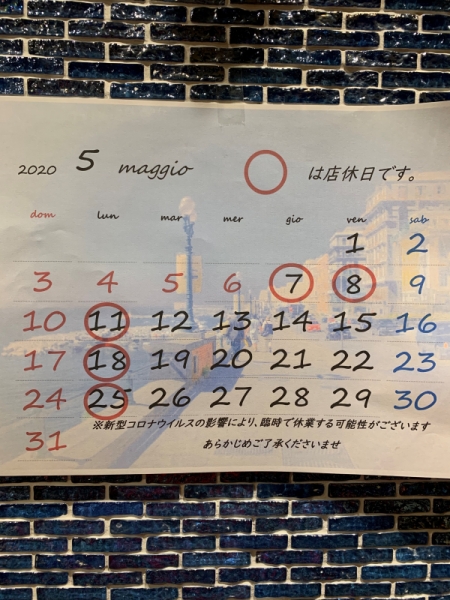 2020 5 maggio ○は店休日です。
dom lun mar mer gio ven sab
1 2
3 4 5 6 7 8 9
10 11 12 13 14 15 16
17 18 19 20 21 22 23
24 25 26 27 28 29 30
※新型コロナウイルスの影響により、臨時で休業する可能性がございます
31
あらかじめご了承くださいませ